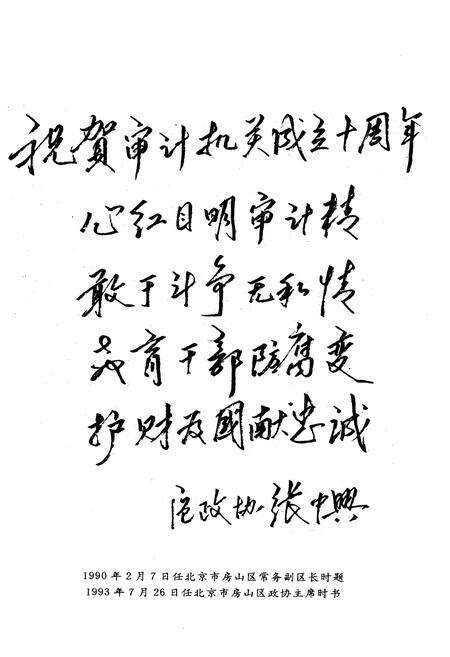 祝贺审计机关成立十周年
心红目明审计精
敢于斗争无私情
教育干部防腐变
护财为国献忠诚
区政协 张中興
1990年2月7日任北京市房山区常务副区长时题
1993年7月26日任北京市房山区政协主席时书